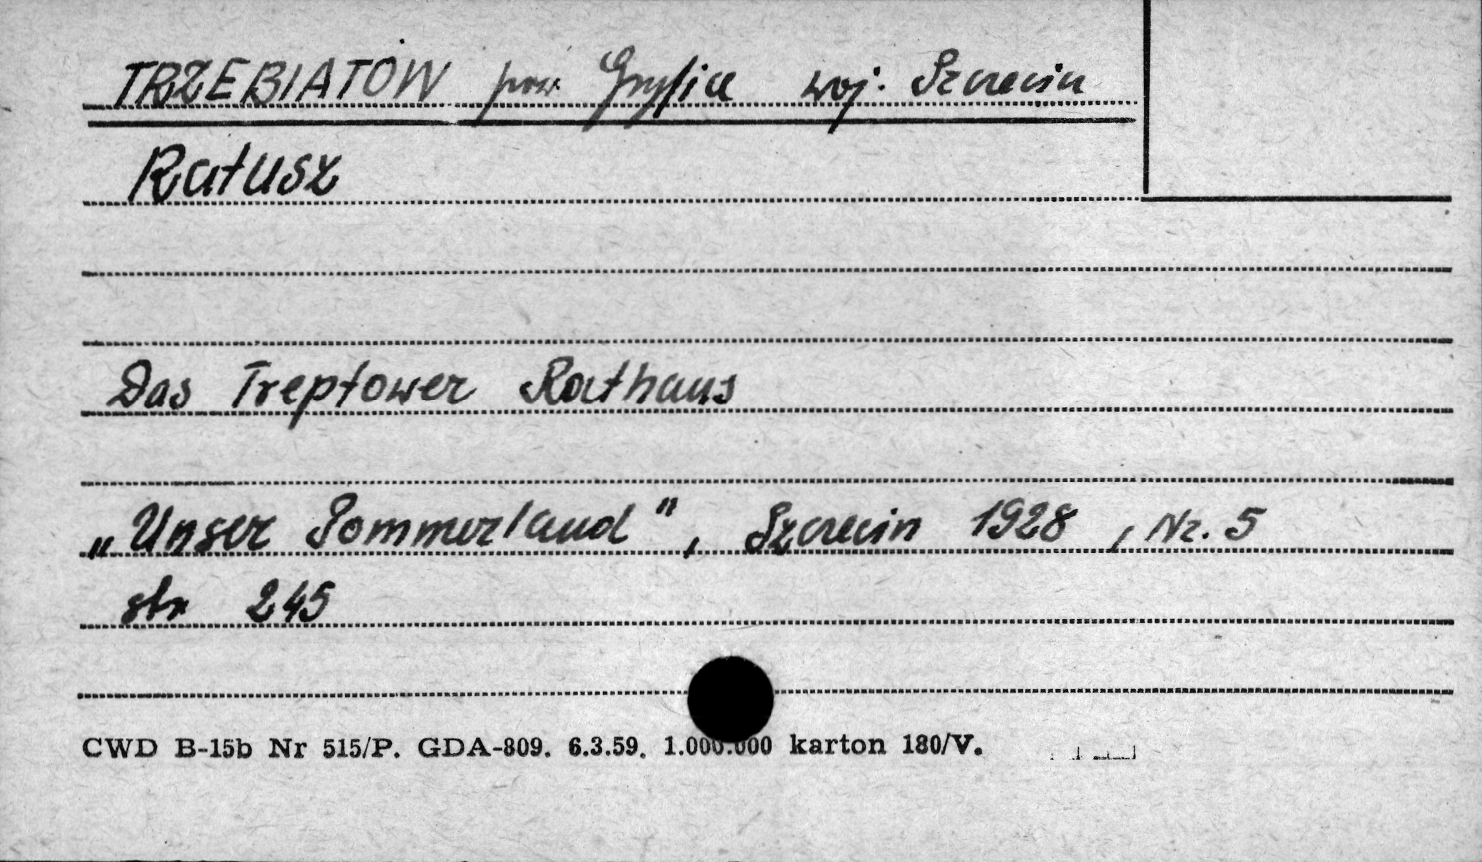 TRZEBIATÓW pow. Gryfice woj. Szczecin
Ratusz
Das Treptower Rathaus
„Unser Pommerland", Szczecin 1928, Nr. 5
str 245
CWD B-15b Nr 515/P. GDA-809. 6.3.59. 1.000.000 karton 180/V.